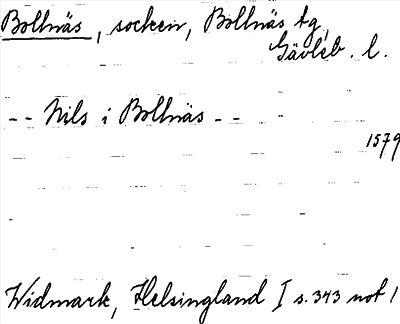 Bollnäs, socken, Bollnäs tg,
Gävleb. l.
-- Nils i Bollnäs --
1579
Widmark, Helsingland I s. 343 not 1